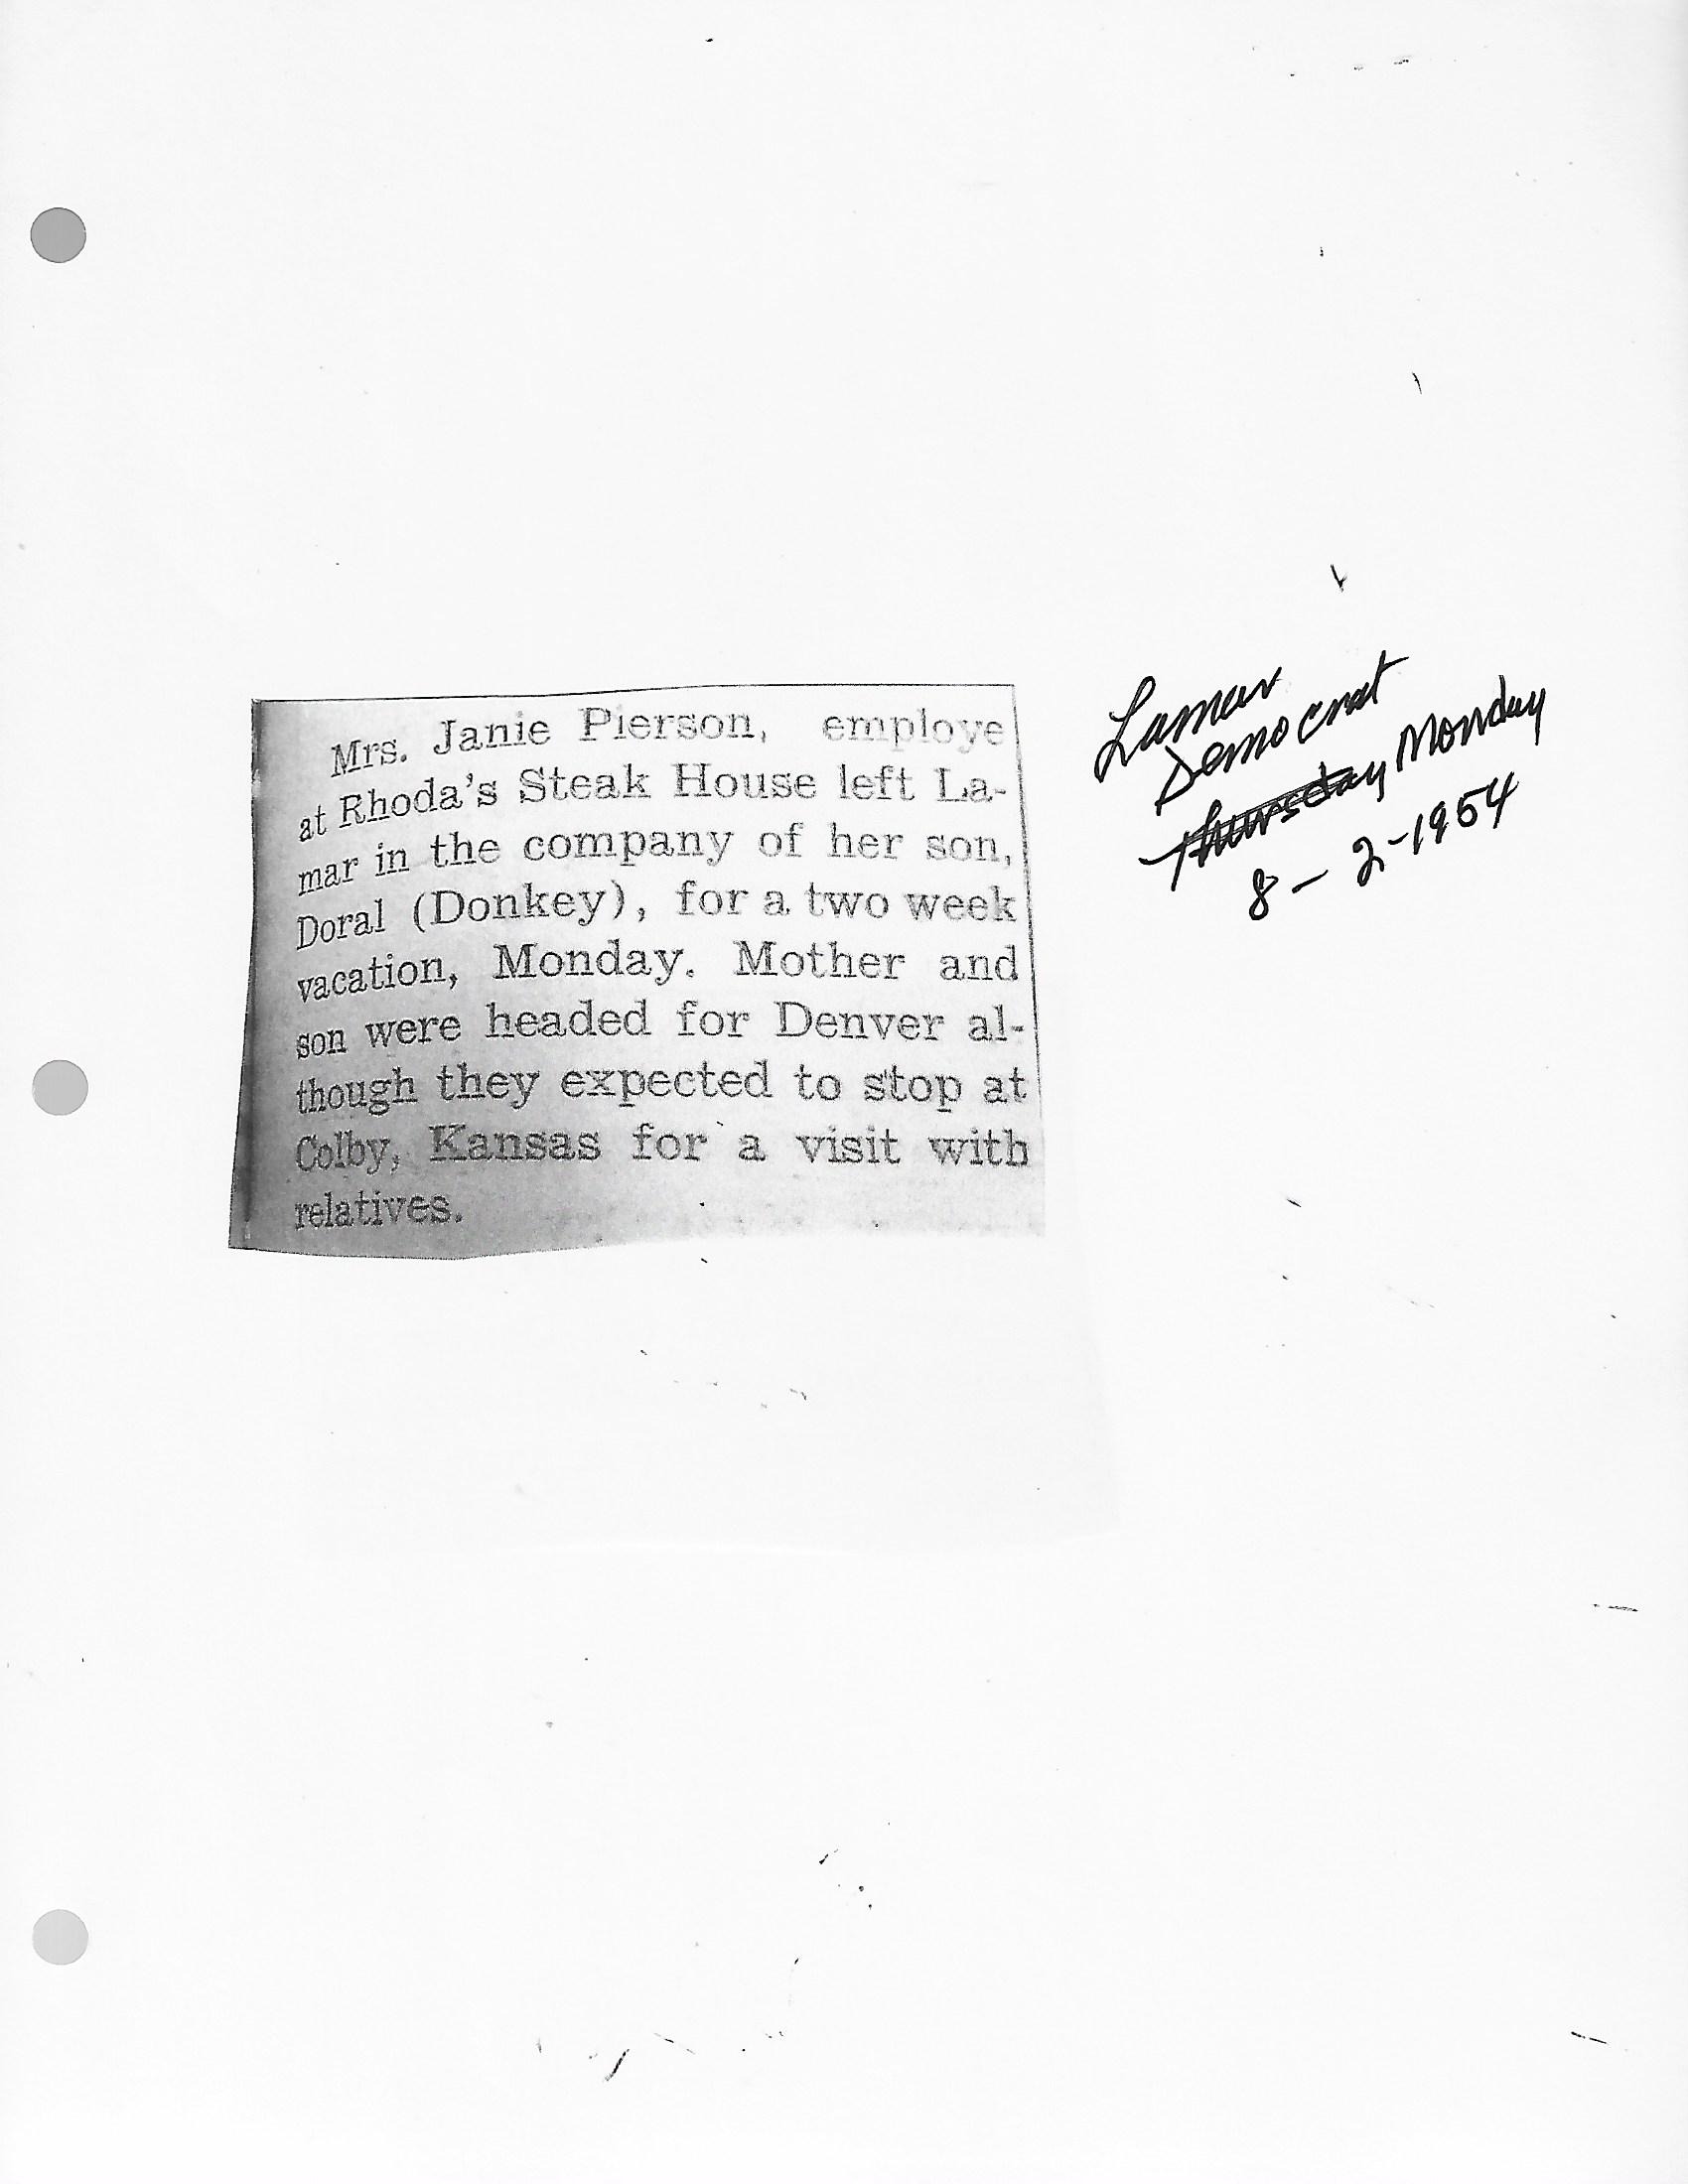 Mrs. Janie Pierson, employe
at Rhoda's Steak House left La-
mar in the company of her son,
Doral (Donkey), for a two week
vacation, Monday. Mother and
son were headed for Denver al-
though they expected to stop at
Colby, Kansas for a visit with
relatives.
Lamar
Democrat
Thursday Monday
8-2-1954